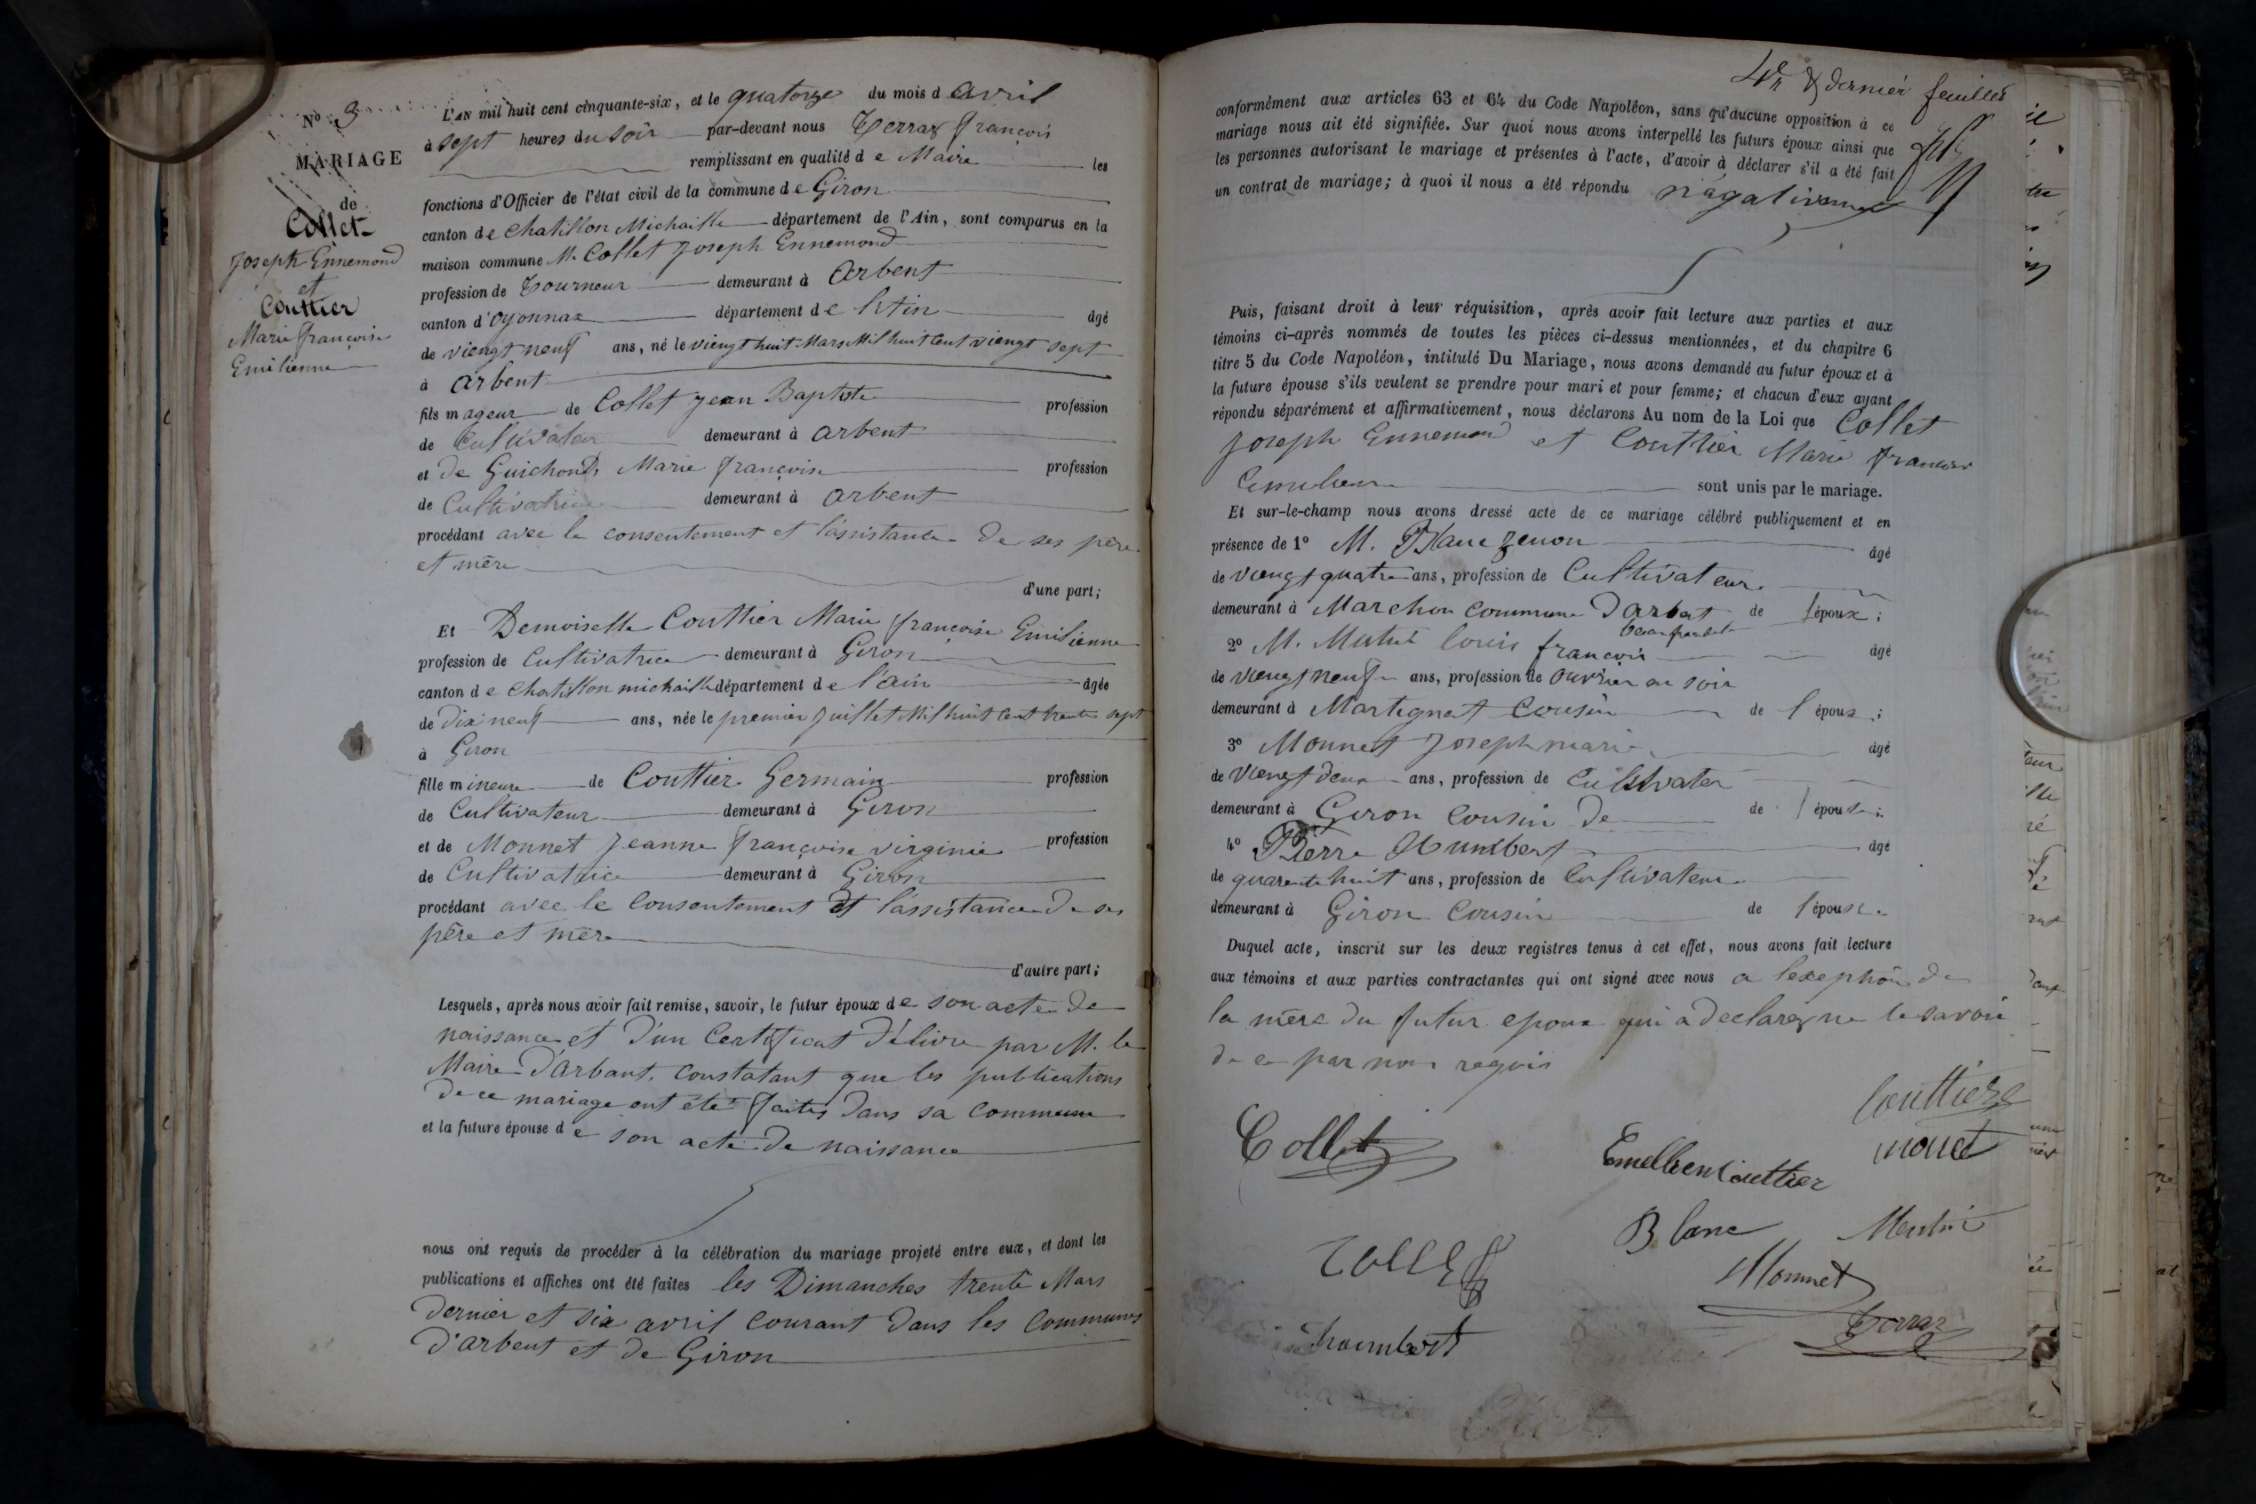 No 3
MARIAGE
de
Collet
Joseph Ennemond
et
Couttier
Marie françoise
Emilienne
L'AN mil huit cent cinquante-six, et le quatorze du mois d avril
à sept heures du soir par-devant nous Terraz françois
remplissant en qualité d e Maire les
fonctions d'Officier de l'état civil de la commune d e Giron
canton d e chatillon Michaille département de l'Ain, sont comparus en la
maison commune M. Collet Joseph Ennemond
profession de Tourneur demeurant à Arbent
canton d'oyonnax département d e l'Ain âgé
de viengt neuf ans, né le viengt huit Mars Mil huit Cent viengt sept
à arbent
fils m ageur de Collet Jean Baptiste profession
de Cultivateur demeurant à arbent
et de Guichond Marie françoise profession
de Cultivatrice demeurant à arbent
procédant avec le consentement et l'assistance de ses père
et mère
d'une part;
Et Demoiselle Couttier Marie françoise Emilienne
profession de Cultivatrice demeurant à Giron
canton d e Chatillon michaille département d e l'ain âgée
de Dix neuf ans, née le premier Juillet Mil huit Cent trente sept
à Giron
fille m ineure de Couttier Germain profession
de Cultivateur demeurant à Giron
et de Monnet Jeanne françoise virginie profession
de Cultivatrice demeurant à Giron
procédant avec le Consentement et l'assistance de ses
père et mère
d'autre part;
Lesquels, après nous avoir fait remise, savoir, le futur époux d e son acte de
naissance et D'un Certificat Délivre par M. le
Maire D'Arbant. Constatant que les publications
de ce mariage ont été faites Dans sa Commune
et la future épouse d e son acte de naissance
nous ont requis de procéder à la célébration du mariage projeté entre eux, et dont les
publications et affiches ont été faites les Dimanches trente Mars
Dernier et six avril Courant Dans les Communes
D'arbent et de Giron
4e & dernier feuillet
conformément aux articles 63 et 64 du Code Napoléon, sans qu'aucune opposition à ce
mariage nous ait été signifiée. Sur quoi nous avons interpellé les futurs époux ainsi que
les personnes autorisant le mariage et présentes à l'acte, d'avoir à déclarer s'il a été fait
un contrat de mariage; à quoi il nous a été répondu nágativement
Puis, faisant droit à leur réquisition, après avoir fait lecture aux parties et aux
témoins ci-après nommés de toutes les pièces ci-dessus mentionnées, et du chapitre 6
titre 5 du Code Napoléon, intitulé Du Mariage, nous avons demandé au futur époux et à
la future épouse s'ils veulent se prendre pour mari et pour femme; et chacun d'eux ayant
répondu séparément et affirmativement, nous déclarons Au nom de la Loi que Collet
Joseph Ennemond et Couttier Marie françoise
Emilienne sont unis par le mariage.
Et sur-le-champ nous avons dressé acte de ce mariage célébré publiquement et en
présence de 1o M. Blanc Zenon âgé
de viengt quatre ans, profession de Cultivateur
demeurant à Marchon Commune D'arbent de l'époux;
2o M. Mutué louis françois âgé
de viengt neuf ans, profession de ouvrier en soie
demeurant à Martignat Cousin de l'époux;
3o Monnet Joseph marie âgé
de viengt deux ans, profession de Cultivater
demeurant à Giron Cousin De de l'épouse;
4o Pierre Humbert âgé
de quarente huit ans, profession de Cultivateur
demeurant à Giron Cousin de l'épouse.
Duquel acte, inscrit sur les deux registres tenus à cet effet, nous avons fait lecture
aux témoins et aux parties contractantes qui ont signé avec nous a lexephoin de
la mère du futur epoux qui a declarez ne le savoir
de ce par nous requis
Couttier
Collet
Emelleen Couttier
monet
Blanc
Collet
Monnet
humbert
Terraz